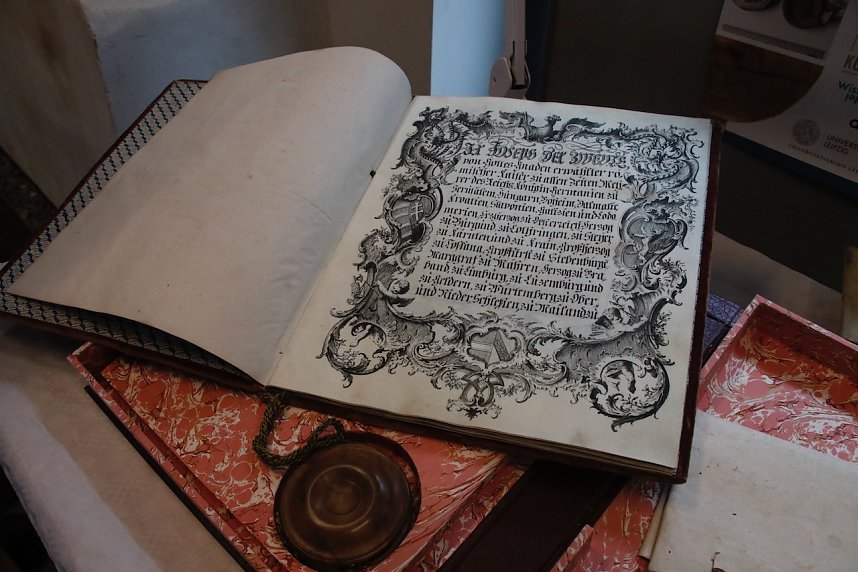 Wir Joseph der Zweyte
von Gottes Gnaden erwählter rö
mischer Kaiser zu allen Zeiten Meh
rer des Reichs, König in Germanien zu
Jerusalem, Hungarn, Böheim, Dalmatie
Kroatien, Slavonien, Gallizien und Lodo
merien, Erzherzog zu Oesterreich, Herzog
zu Burgund, zu Lothringen, zu Steyer
zu Kärnten und zu Krain, Großherzog
zu Toskana, Großfürst zu Siebenbürge
Marggraf zu Mähren, Herzog zu Bra
band, zu Limburg, zu Luzemburg und
zu Geldern, zu Würtemberg, zu Ober
und Nieder Schlesien, zu Mailand, zu
UNIVERSITÄT
LEIPZIG